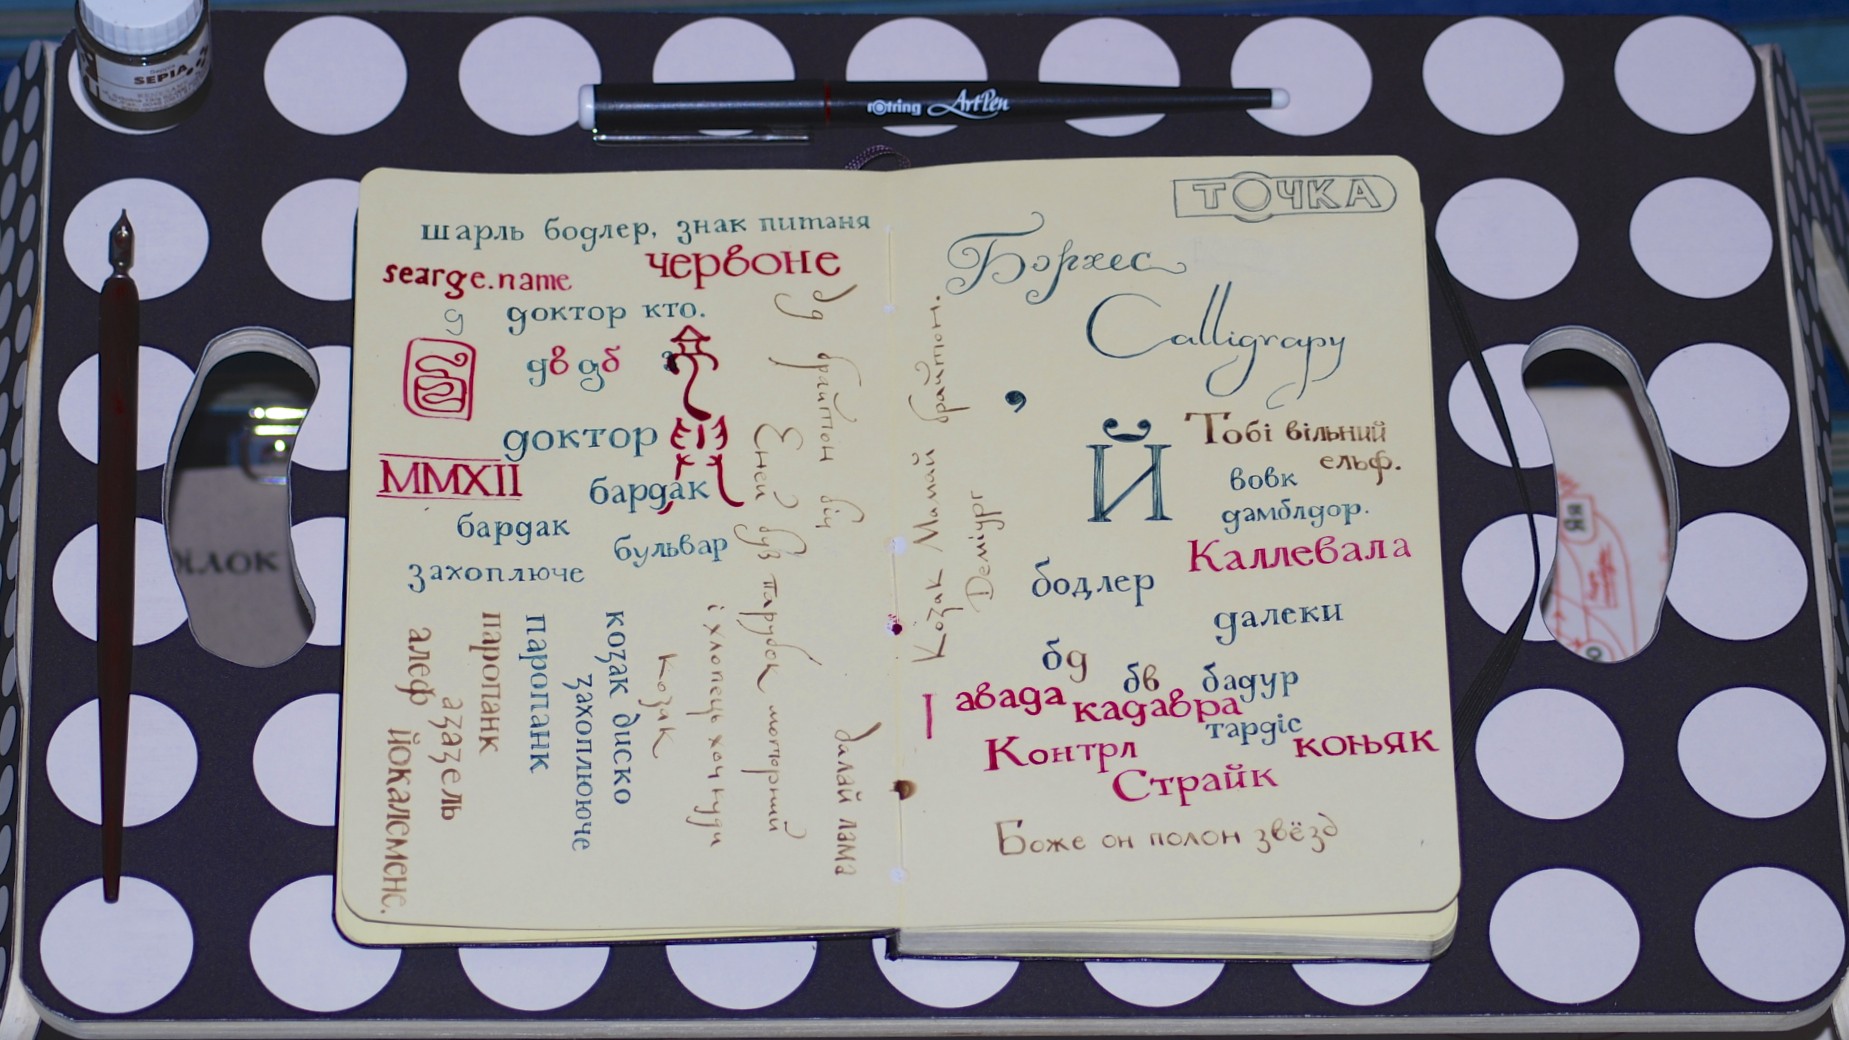 SEPIA
rotring ArtPen
шарль бодлер, знак питаня
червоне
searge.name
доктор кто.
дв дб
доктор
MMXII
бардак
бардак
бульвар
захоплюче
алеф йокалемене.
азазель
паропанк
паропанк
захоплююче
козак диско
козак
і хлопець хоч куди
Еней був парубок моторний
брайтон біч
далай лама
Козак Мамай брайтон.
Деміургг
ТОЧКА
Борхес
Calligrapy
,
Й
Тобі вільний
ельф.
вовк
дамблдор.
Каллевала
бодлер
далеки
бд
бв бадур
авада кадавра
тардіс
Контрл
коньяк
Страйк
Боже он полон звёзд
ілок